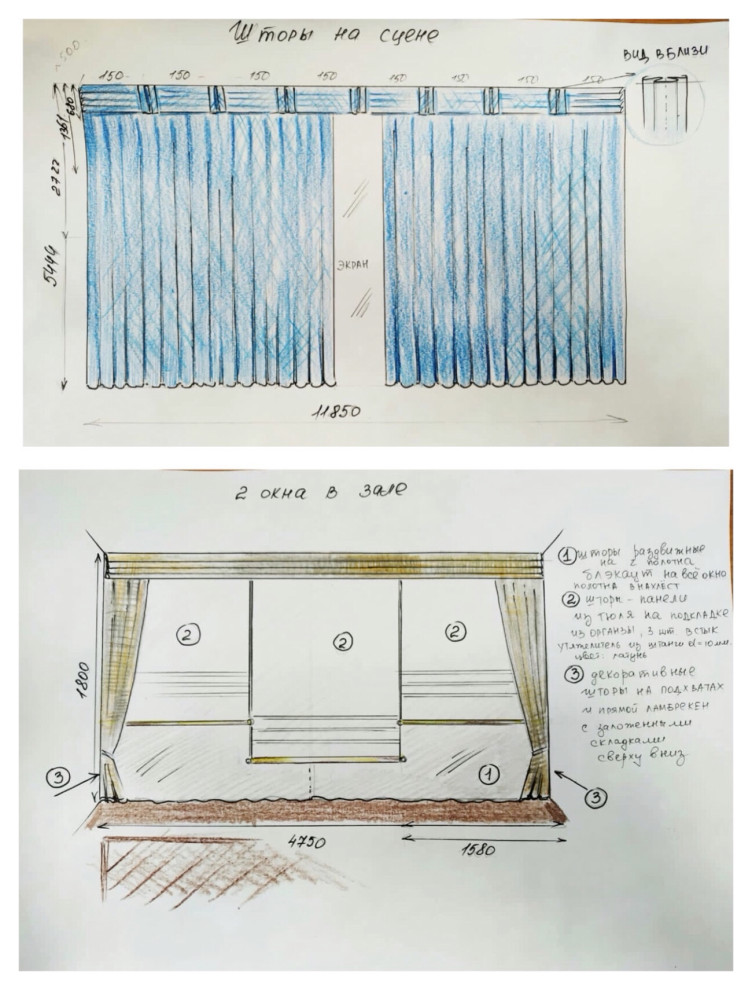 Шторы на сцене
~500-
150 150 150 150 150 150 150 150
вид вблизи
680
1361
2722
5444
ЭКРАН
11850
2 окна в зале
① шторы раздвижные
на 2 полотна
блэкаут на всё окно
полотна внахлёст
② шторы-панели
из тюля на подкладке
из органзы, 3 шт встык
утяжелитель из штанги d=10мм.
цвет: латунь
③ декоративные
шторы на подхватах
и прямой ламбрекен
с заложенными
складками
сверху вниз
②
②
②
1800
①
③
③
4750
1580